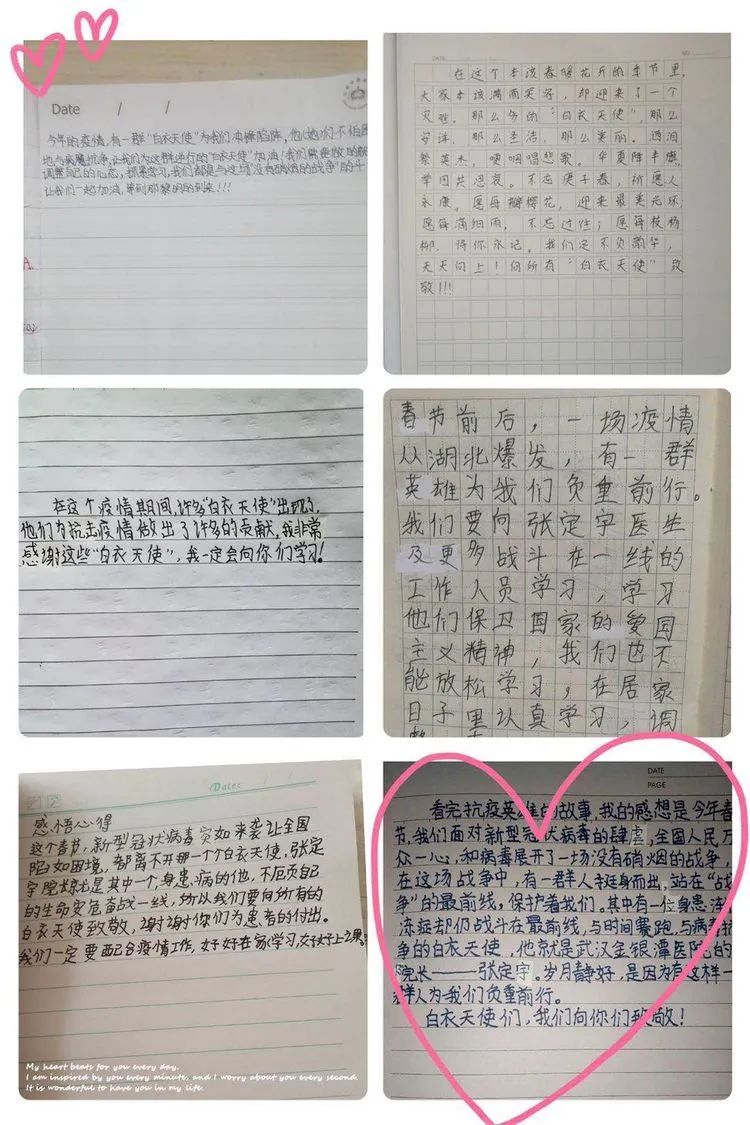 Date / /
今年的疫情,有一群“白衣天使”为我们冲锋陷阵,他(她)们不怕困
地与病魔抗争,让我们为这群逆行的“白衣天使”加油!我们需要做的就
调整自己的心态,抓紧学习,我们都是与这场“没有硝烟的战争”的斗
让我们一起加油,等到那黎明的到来!!!
DATE
NO
在这个本该春暖花开的季节里,
大家本该满面笑容,却迎来了一个
灾难。那么多的“白衣天使”,那么
安详,那么圣洁,那么美丽。洒泪
祭英杰,哽咽唱悲歌。华夏降半旗,
举国共思哀。不忘庚子春,祈愿人
永康。愿每瓣樱花,迎来最美元环
愿每滴细雨,不忘过往;愿每枝杨
柳,将你永记。我们定不负韶华,
天天向上!向所有“白衣天使”致
敬!!!
在这个疫情期间,许多“白衣天使”出现了,
他们为抗击疫情做出了许多的贡献,我非常
感谢这些“白衣天使”,我一定会向你们学习!
春节前后,一场疫情
从湖北爆发,有一群
英雄为我们负重前行。
我们要向张定宇医生
及更多战斗在一线的
工作人员学习,学习
他们保卫国家的爱国
主义精神,我们也不
能放松学习,在居家
日子里认真学习,调
Date:
感悟心得
这个春节,新型冠状病毒突如来袭让全国
陷如困境,都离不开那一个个白衣天使,张定
宇院长就是其中一个,身患病的他,不厄负自己
的生命安危奋战一线,所以我们要向所有的
白衣天使致敬,谢谢你们为患者的付出。
我们一定要配合疫情工作,好好在家学习,好好上课
My heart beats for you every day.
I am inspired by you every minute, and I worry about you every second.
It is wonderful to have you in my life.
DATE
PAGE
看完抗疫英雄的故事,我的感想是今年春
节,我们面对新型冠状病毒的肆虐,全国人民万
众一心,和病毒展开了一场没有硝烟的战争,
在这场战争中,有一群人挺身而出,站在“战
争”的最前线,保护着我们。其中有一位身患渐
冻症却仍战斗在最前线,与时间赛跑,与病毒抗
争的白衣天使,他就是武汉金银潭医院的
院长——张定宇。岁月静好,是因为有这样一
群人为我们负重前行。
白衣天使们,我们向你们致敬!